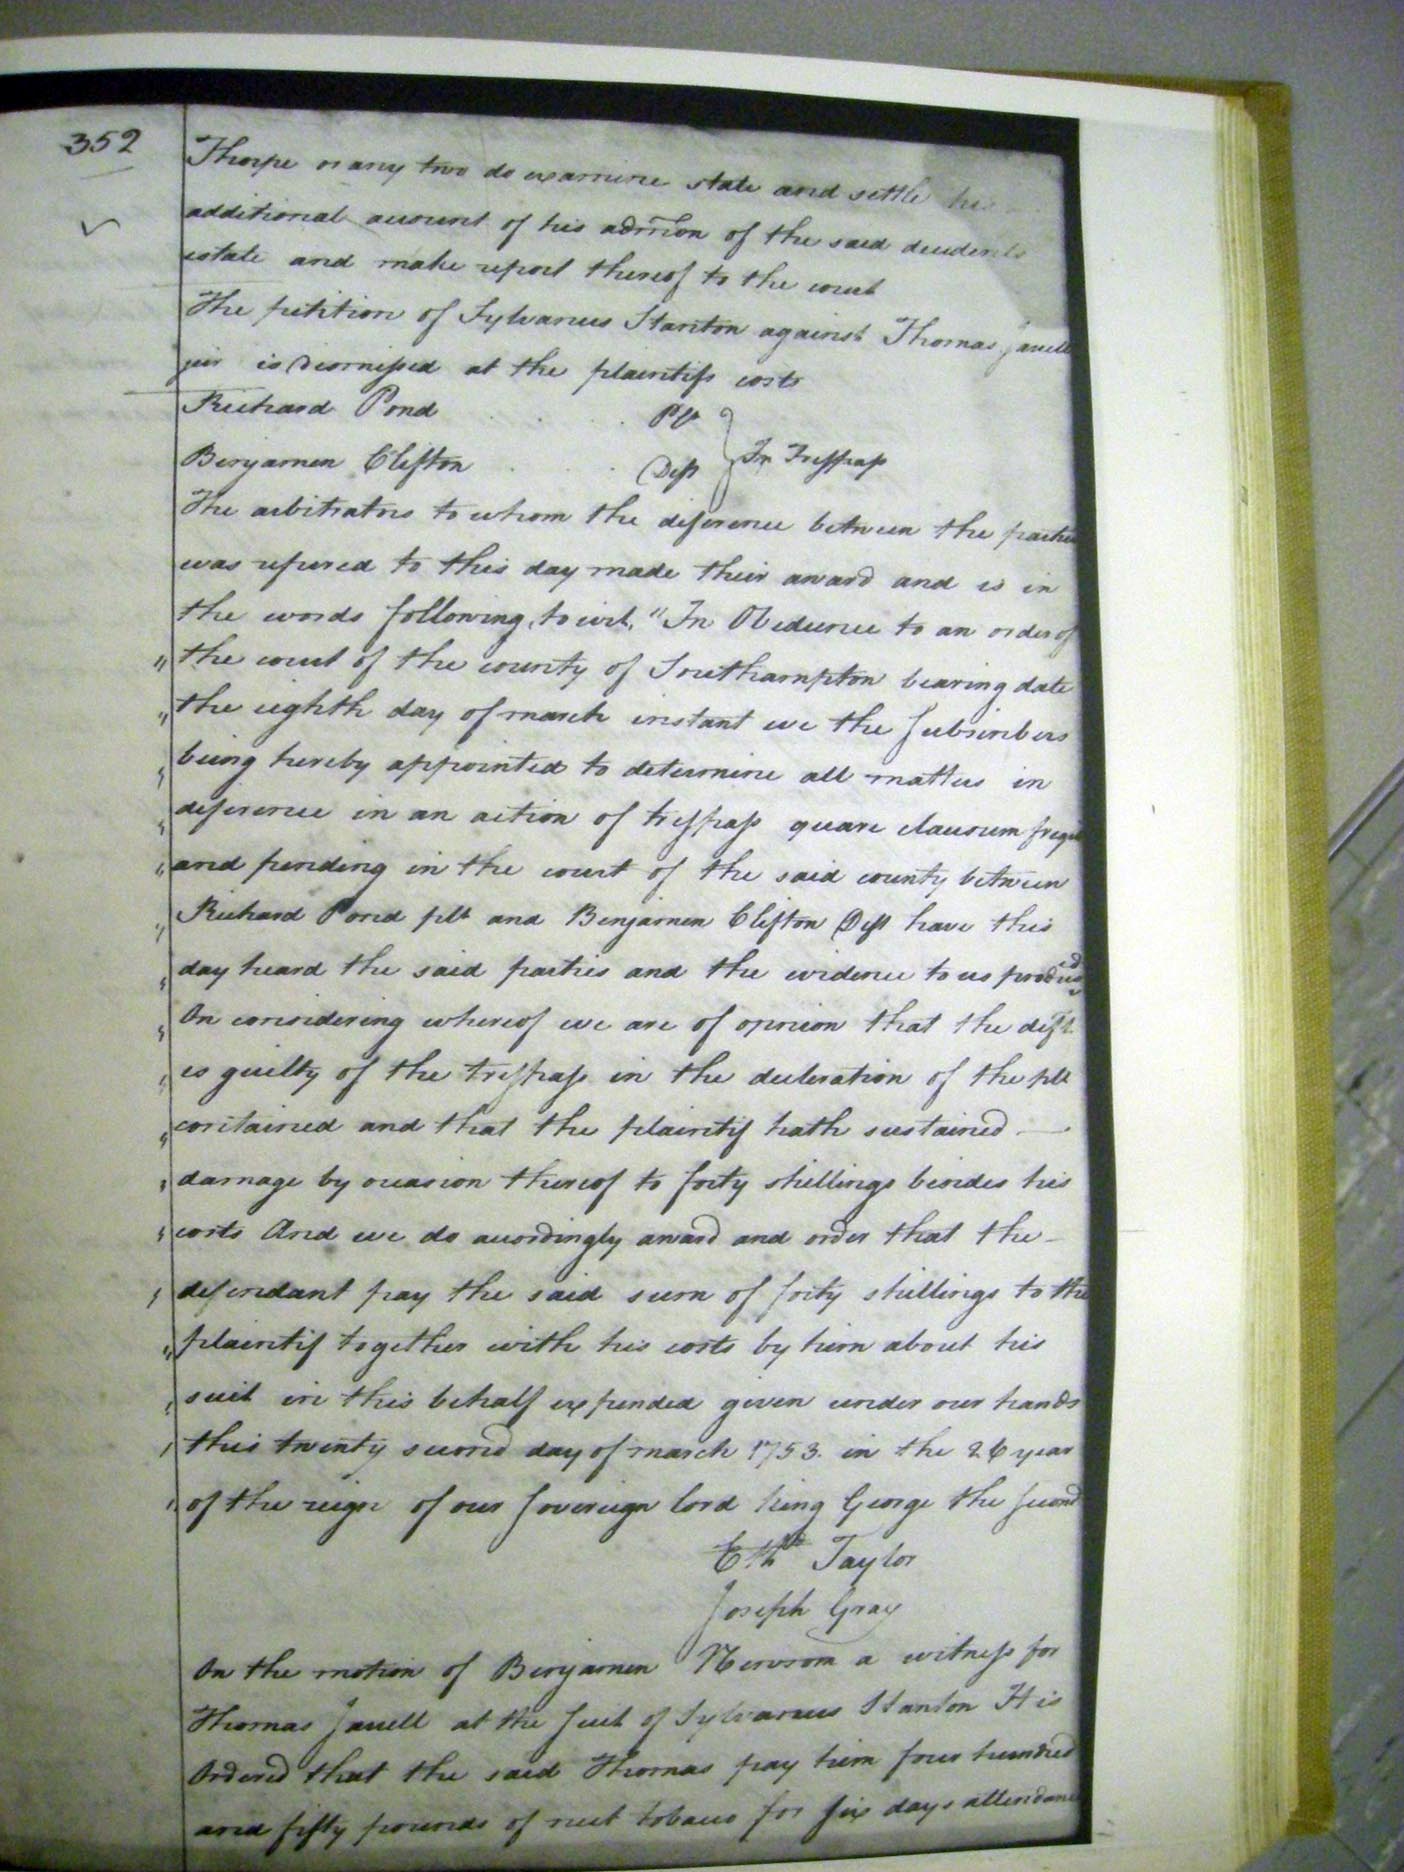 352
Thorpe or any two do examine state and settle his
additional account of his admĩon of the said decedents
estate and make report thereof to the court
The petition of Sylvanus Stanton against Thomas Jarrell
jun is dismissed at the plaintifs costs
Richard Pond . . . . Plt
} In Tresspass
Benjamen Clifton . . . Deft
The arbitrators to whom the diference between the parties
was refered to this day made their award and is in
the words following, to wit, "In Obedience to an order of
" the court of the county of Southampton bearing date
" the eighth day of march instant we the subscribers
" being hereby appointed to determine all matters in
" diference in an action of tresspass quare clausum fregit
" and pending in the court of the said county between
" Richard Pond plt and Benjamen Clifton Deft have this
" day heard the said parties and the evidence to us produced
" On considering whereof we are of opinion that the deft.
" is guilty of the tresspass in the decleration of the plt
" contained and that the plaintif hath sustained —
" damage by occasion thereof to forty shillings besides his
" costs And we do accordingly award and order that the –
" defendant pay the said sum of forty shillings to the
" plaintif together with his costs by him about his
" suit in this behalf expended given under our hands
" this twenty second day of march 1753. in the 26 year
" of the reign of our sovereign lord king George the second
Ethd Taylor
Joseph Gray
On the motion of Benjamen Newsom a witness for
Thomas Jarrell at the suit of Sylvanus Stanton It is
Ordered that the said Thomas pay him four hundred
and fifty pounds of nett tobacco for six days attendance